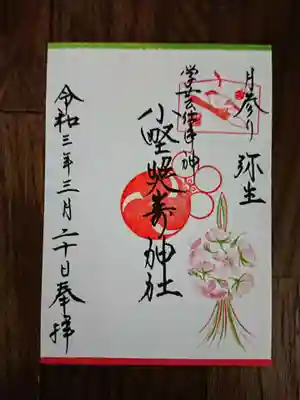 月参り 弥生
学芸信仰神
小野照崎神社
令和三年三月二十日奉拝